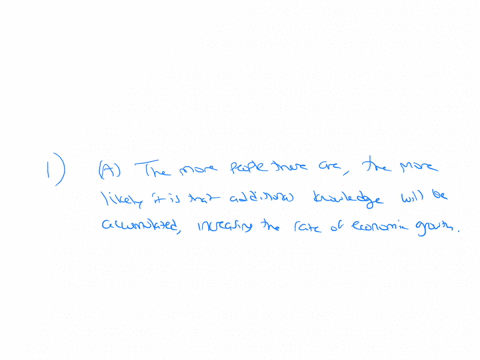 1) (A) The more people there are, the more
likely it is that additional knowledge will be
accumulated, increasing the rate of economic growth.